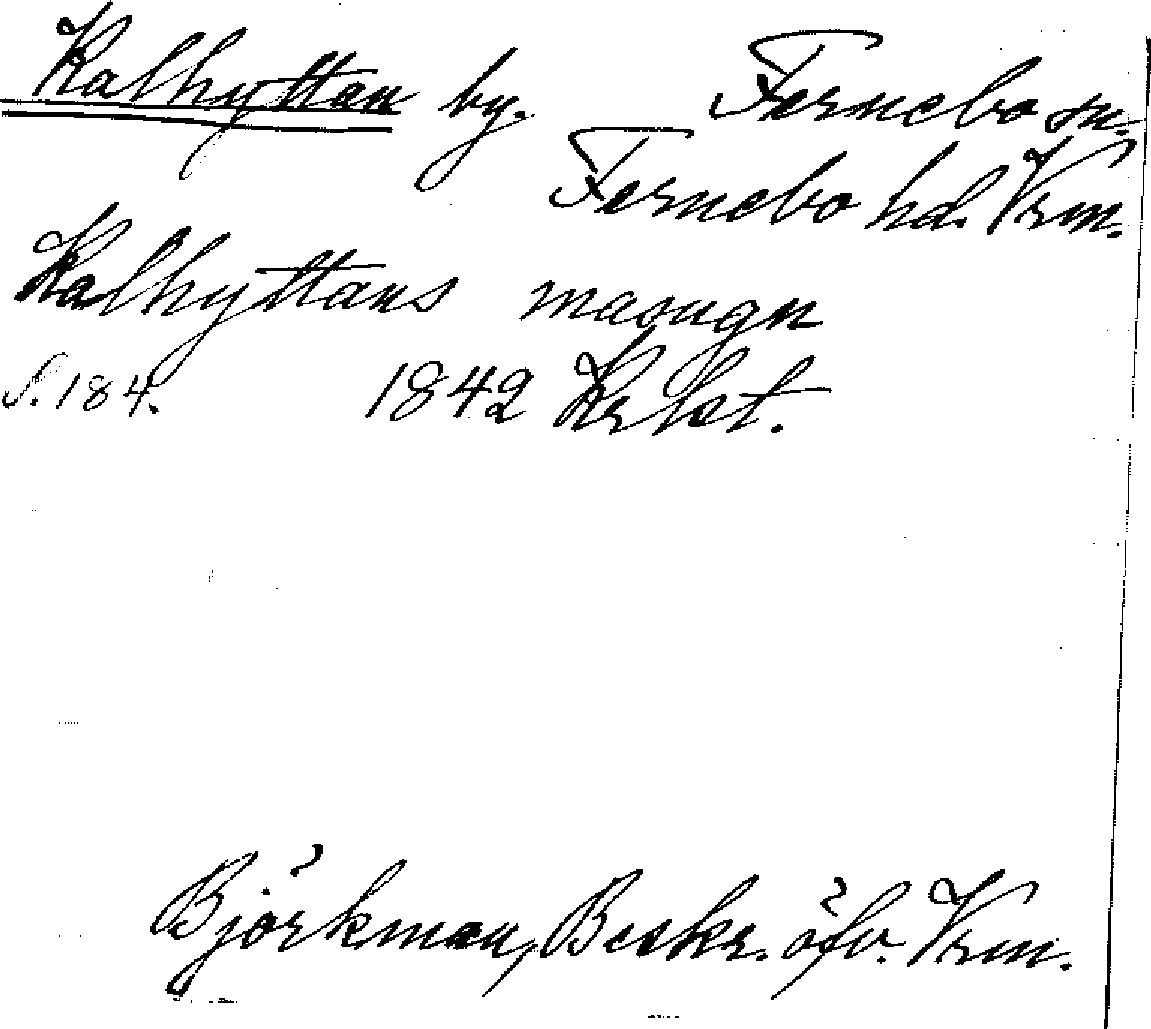 Kalhyttan by. Fernebo sn.
Fernebo hd. Vrm.
Kalhyttans masugn
S. 184. 1842 Krlst.
Björkman, Beskr. öfv. Vrm.